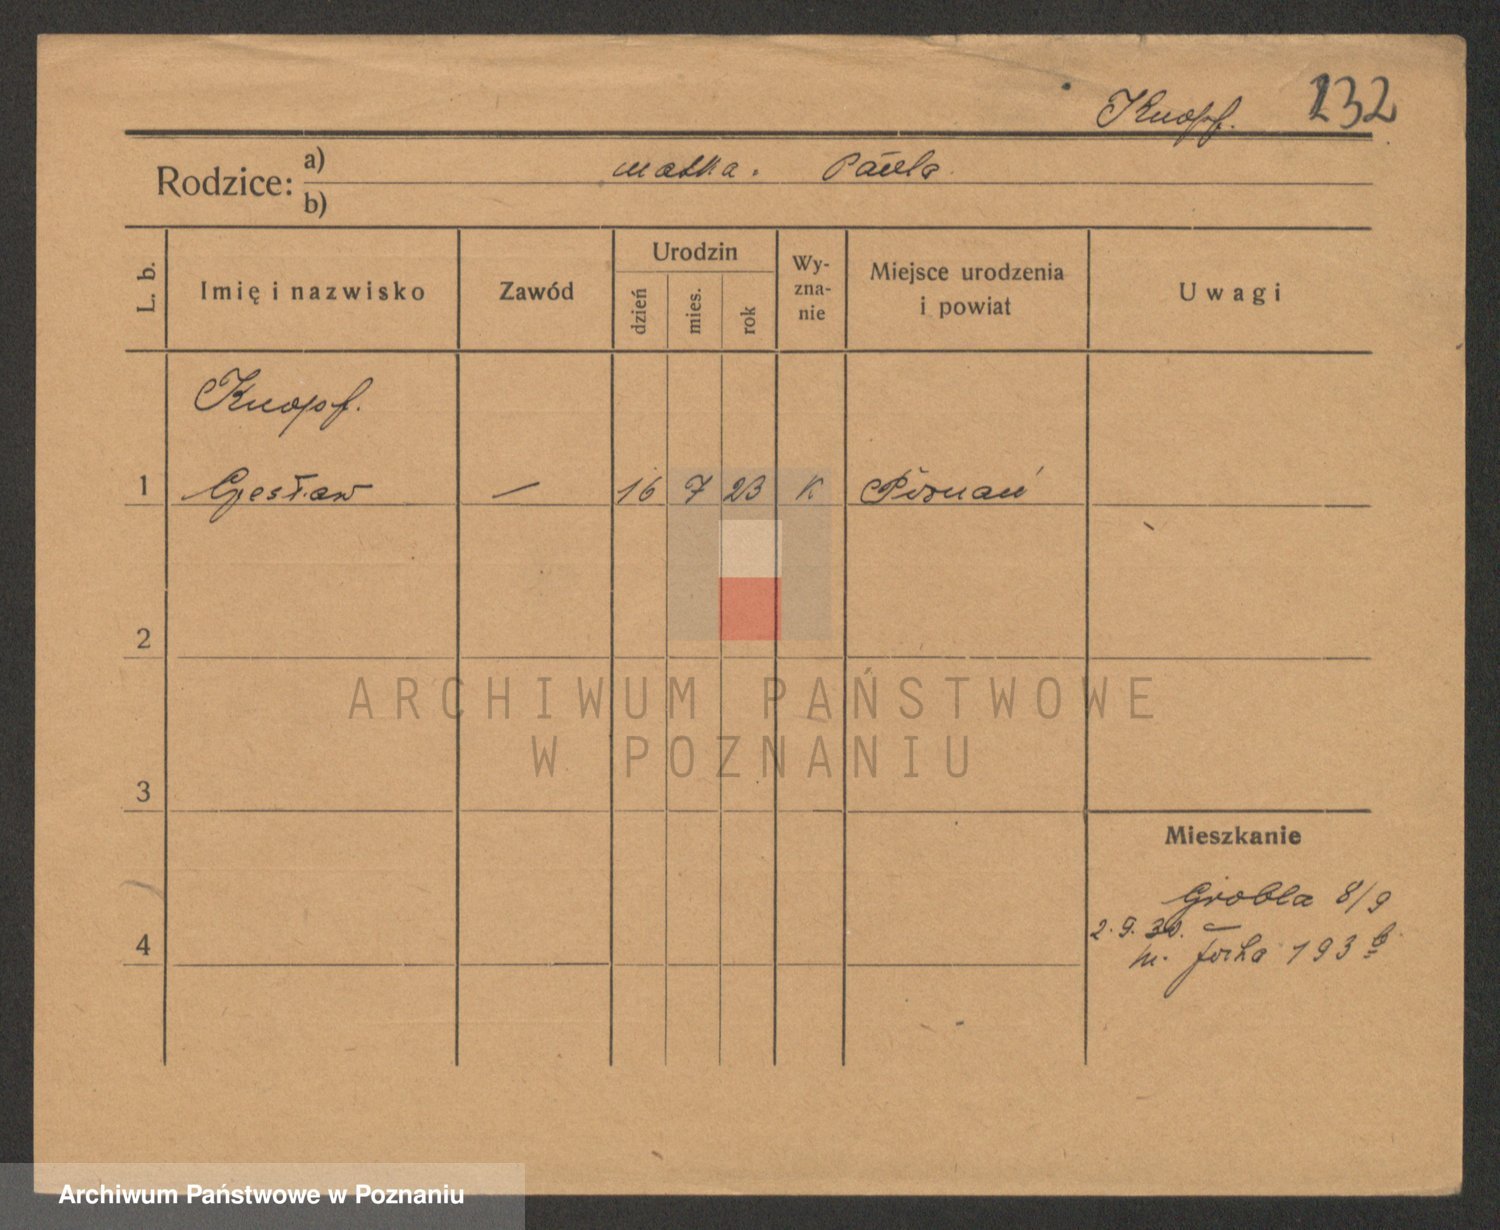 Knopf. 132
Rodzice: a) matka. Paula.
b)
L. b.
Imię i nazwisko
Zawód
Urodzin
dzień
mies.
rok
Wy-
zna-
nie
Miejsce urodzenia
i powiat
Uwagi
Knopf.
1 Czesław — 16 7 23 K Poznań
2
3
4
Mieszkanie
Grobla 8/9
2.9.30.
m. Focha 193 b
ARCHIWUM PAŃSTWOWE
W POZNANIU
Archiwum Państwowe w Poznaniu